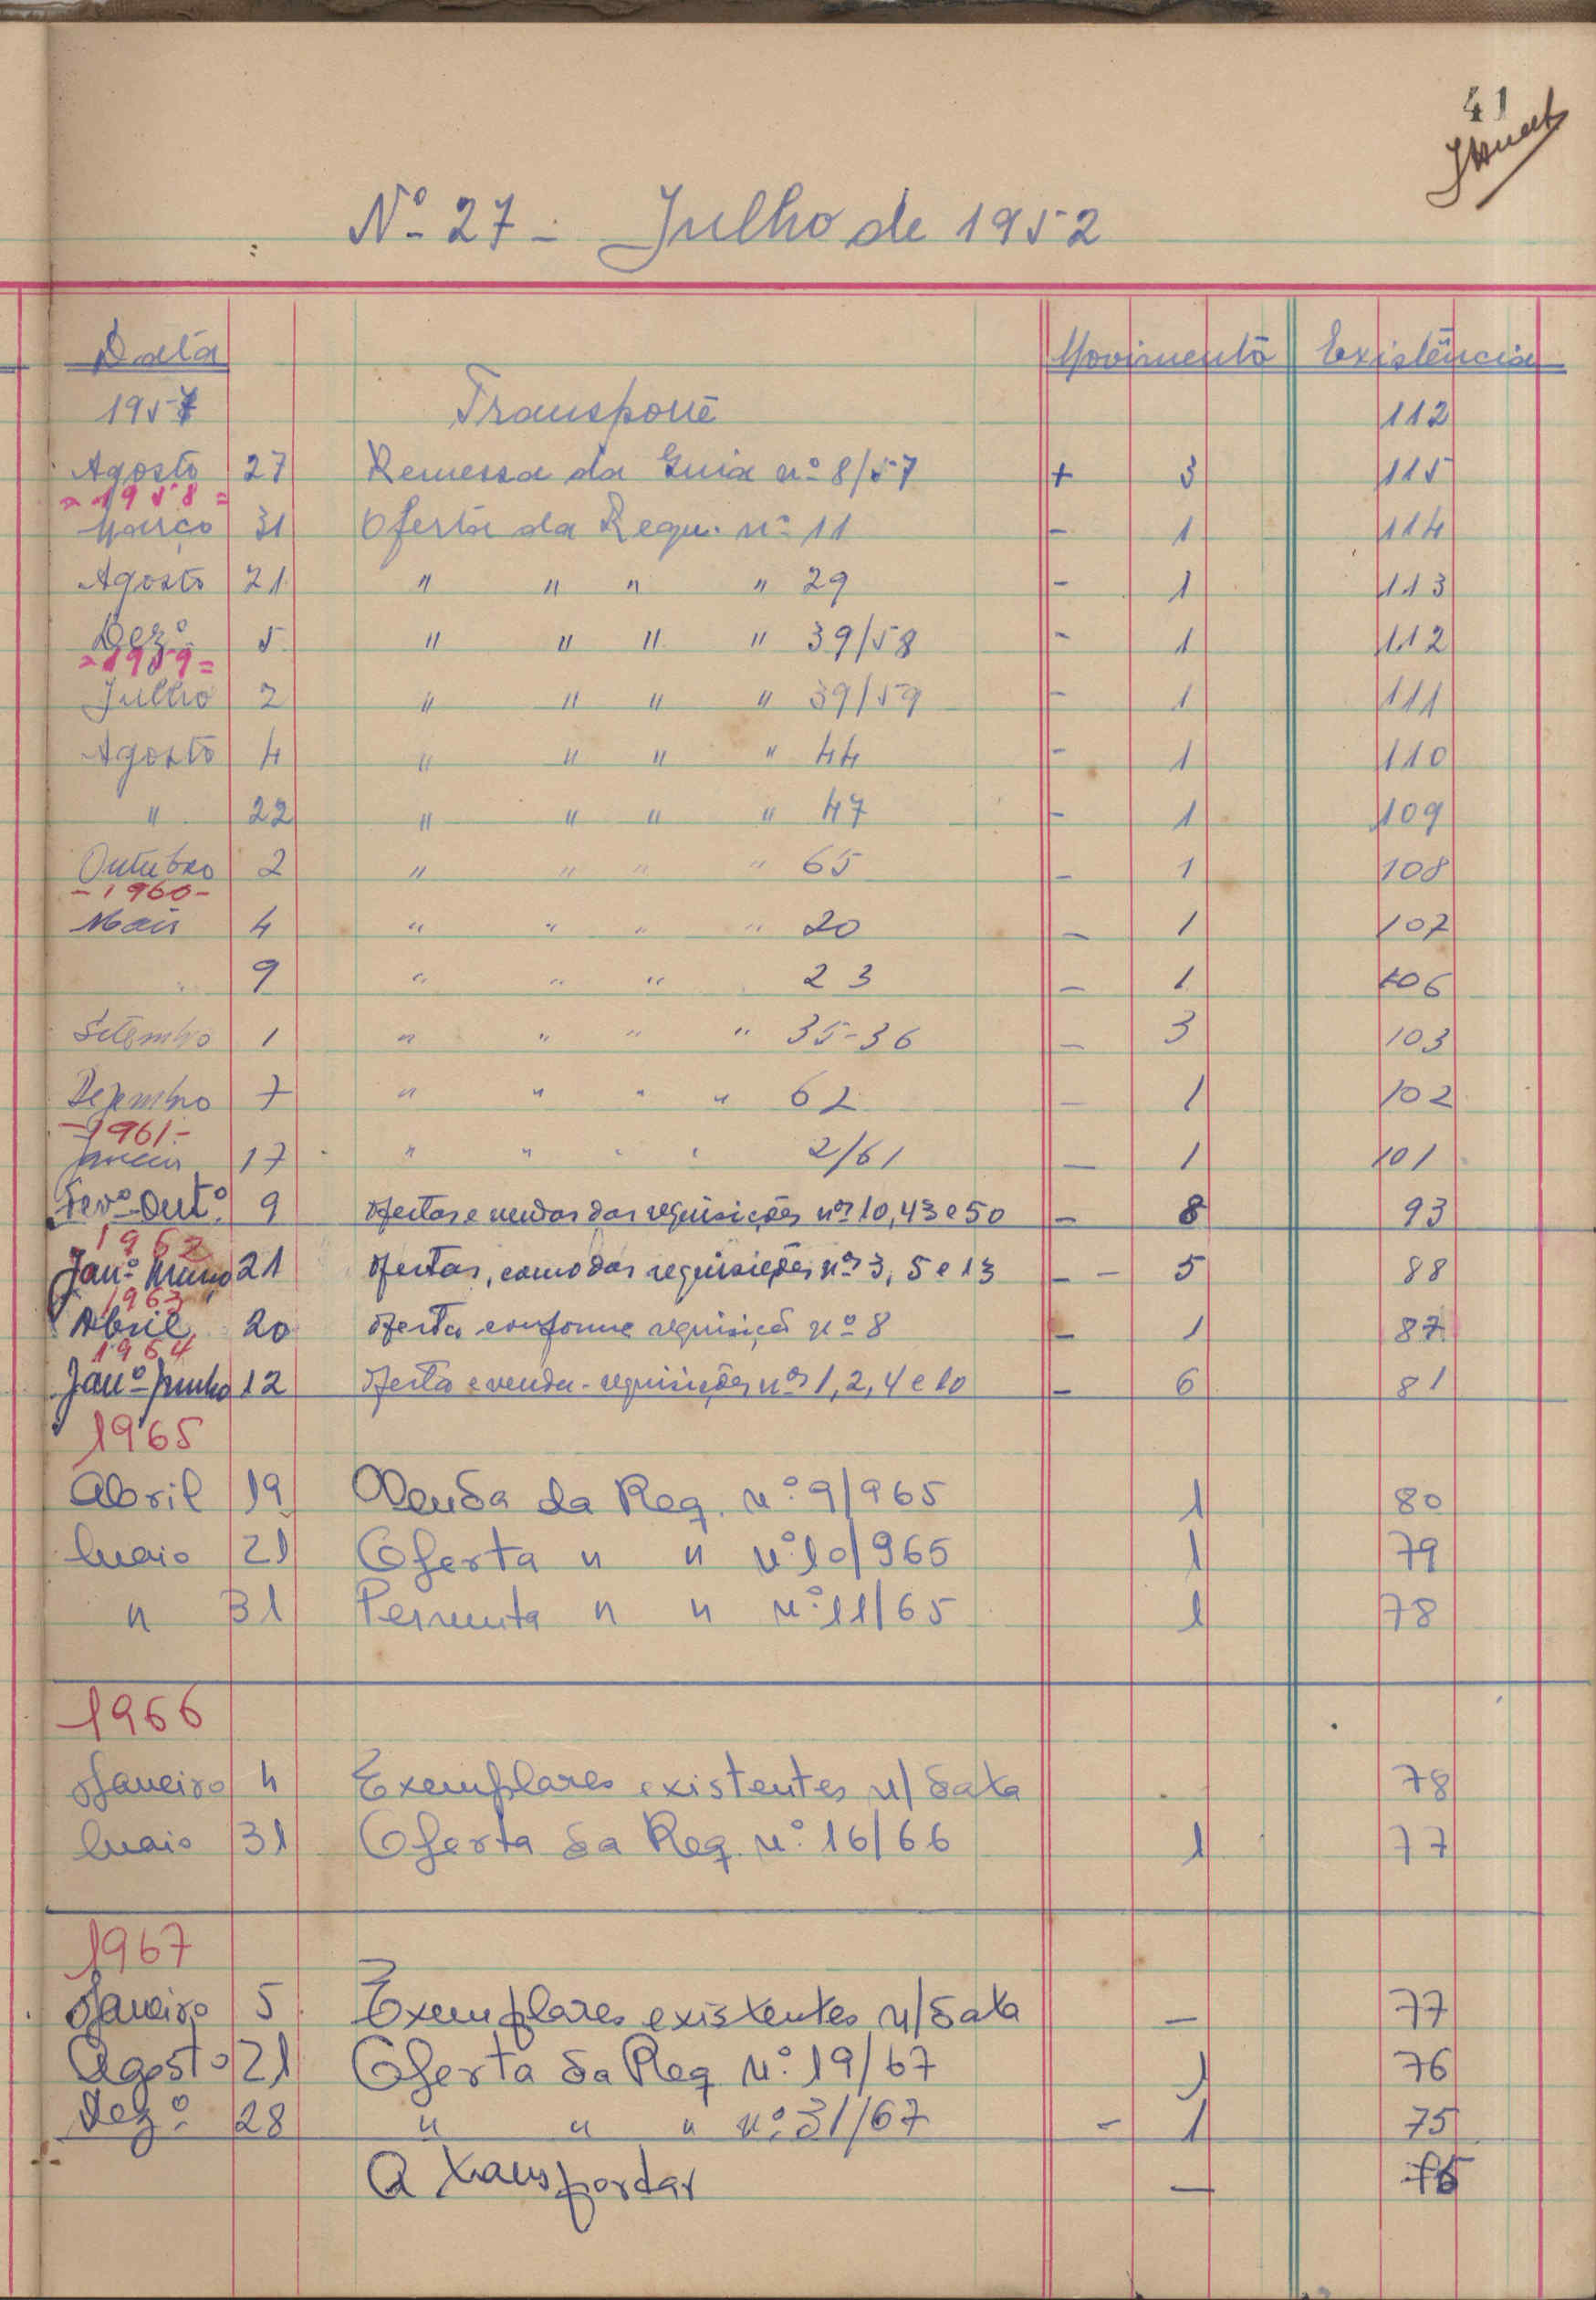 41
Nº 27 - Julho de 1952
Data Movimento Existência
1957 Transporte 112
Agosto 27 Remessa da Guia nº 8/57 + 3 115
= 1958 =
Março 31 Oferta da Requ. nº 11 - 1 114
Agosto 21 " " " " 29 - 1 113
Dezº 5 " " " " 39/58 - 1 112
= 1959 =
Julho 2 " " " " 39/59 - 1 111
Agosto 4 " " " " 44 - 1 110
" 22 " " " " 47 - 1 109
Outubro 2 " " " " 65 - 1 108
- 1960 -
Maio 4 " " " " 20 - 1 107
" 9 " " " 23 - 1 106
Setembro 1 " " " " 35-36 - 3 103
Dezembro 7 " " " " 62 - 1 102
- 1961 -
Janeiro 17 " " " " 2/61 - 1 101
Fevº-Outº 9 ofertas e vendas das requisições nºs 10, 43 e 50 - 8 93
1962
Janº 21 ofertas, como das requisições nºs 3, 5 e 13 - - 5 88
1963
Abril 20 oferta conforme requisição nº 8 - 1 87
1964
Janº-Junho 12 oferta e venda - requisições nºs 1, 2, 4 e 10 - 6 81
1965
Abril 19 Venda da Req. nº 9/965 1 80
Maio 21 Oferta " " nº 10/965 1 79
" 31 Permuta " " nº 11/65 1 78
1966
Janeiro 4 Exemplares existentes n/data 78
Maio 31 Oferta da Req. nº 16/66 1 77
1967
Janeiro 5 Exemplares existentes n/data - 77
Agosto 21 Oferta da Req nº 19/67 1 76
Dezº 28 " " " nº 31/67 - 1 75
A transportar - 75